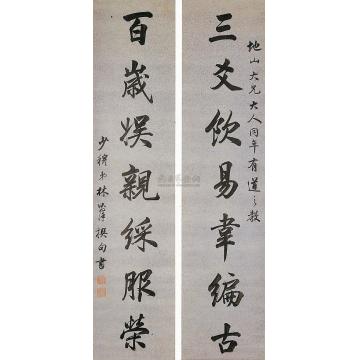 地山大兄大人同年有道之教
三爻飲易韋編古
百歲娛親綵服榮
少穆弟林則徐撰句書